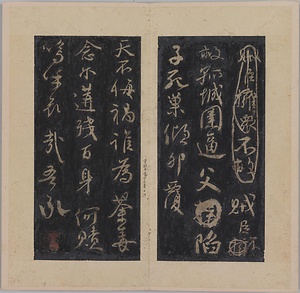 賊臣擁衆不救賊臣不
救孤城圍逼父陷
子死巢傾卵覆
天不悔禍誰為荼毒
念爾遘殘百身何贖
嗚呼哀哉吾承